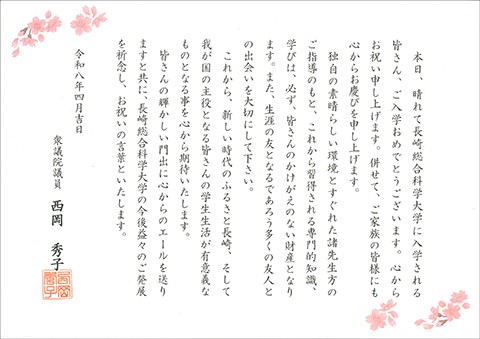 本日、晴れて長崎総合科学大学に入学される
皆さん、ご入学おめでとうございます。心から
お祝い申し上げます。併せて、ご家族の皆様にも
心からお慶びを申し上げます。
独自の素晴らしい環境とすぐれた諸先生方の
ご指導のもと、これから習得される専門的知識、
学びは、必ず、皆さんのかけがえのない財産となり
ます。また、生涯の友となるであろう多くの友人と
の出会いを大切にして下さい。
これから、新しい時代のふるさと長崎、そして
我が国の主役となる皆さんの学生生活が有意義な
ものとなる事を心から期待いたします。
皆さんの輝かしい門出に心からのエールを送り
ますと共に、長崎総合科学大学の今後益々のご発展
を祈念し、お祝いの言葉といたします。
令和八年四月吉日
衆議院議員 西岡 秀子
西岡秀子